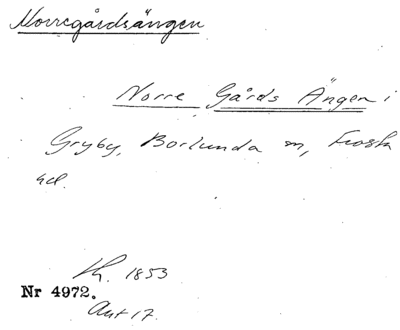 Norregårdsängen
Norre Gårds Ängen i
Gryby, Borlunda sn, Frosta
hd.
1853
Nr 4972.
Akt 17.